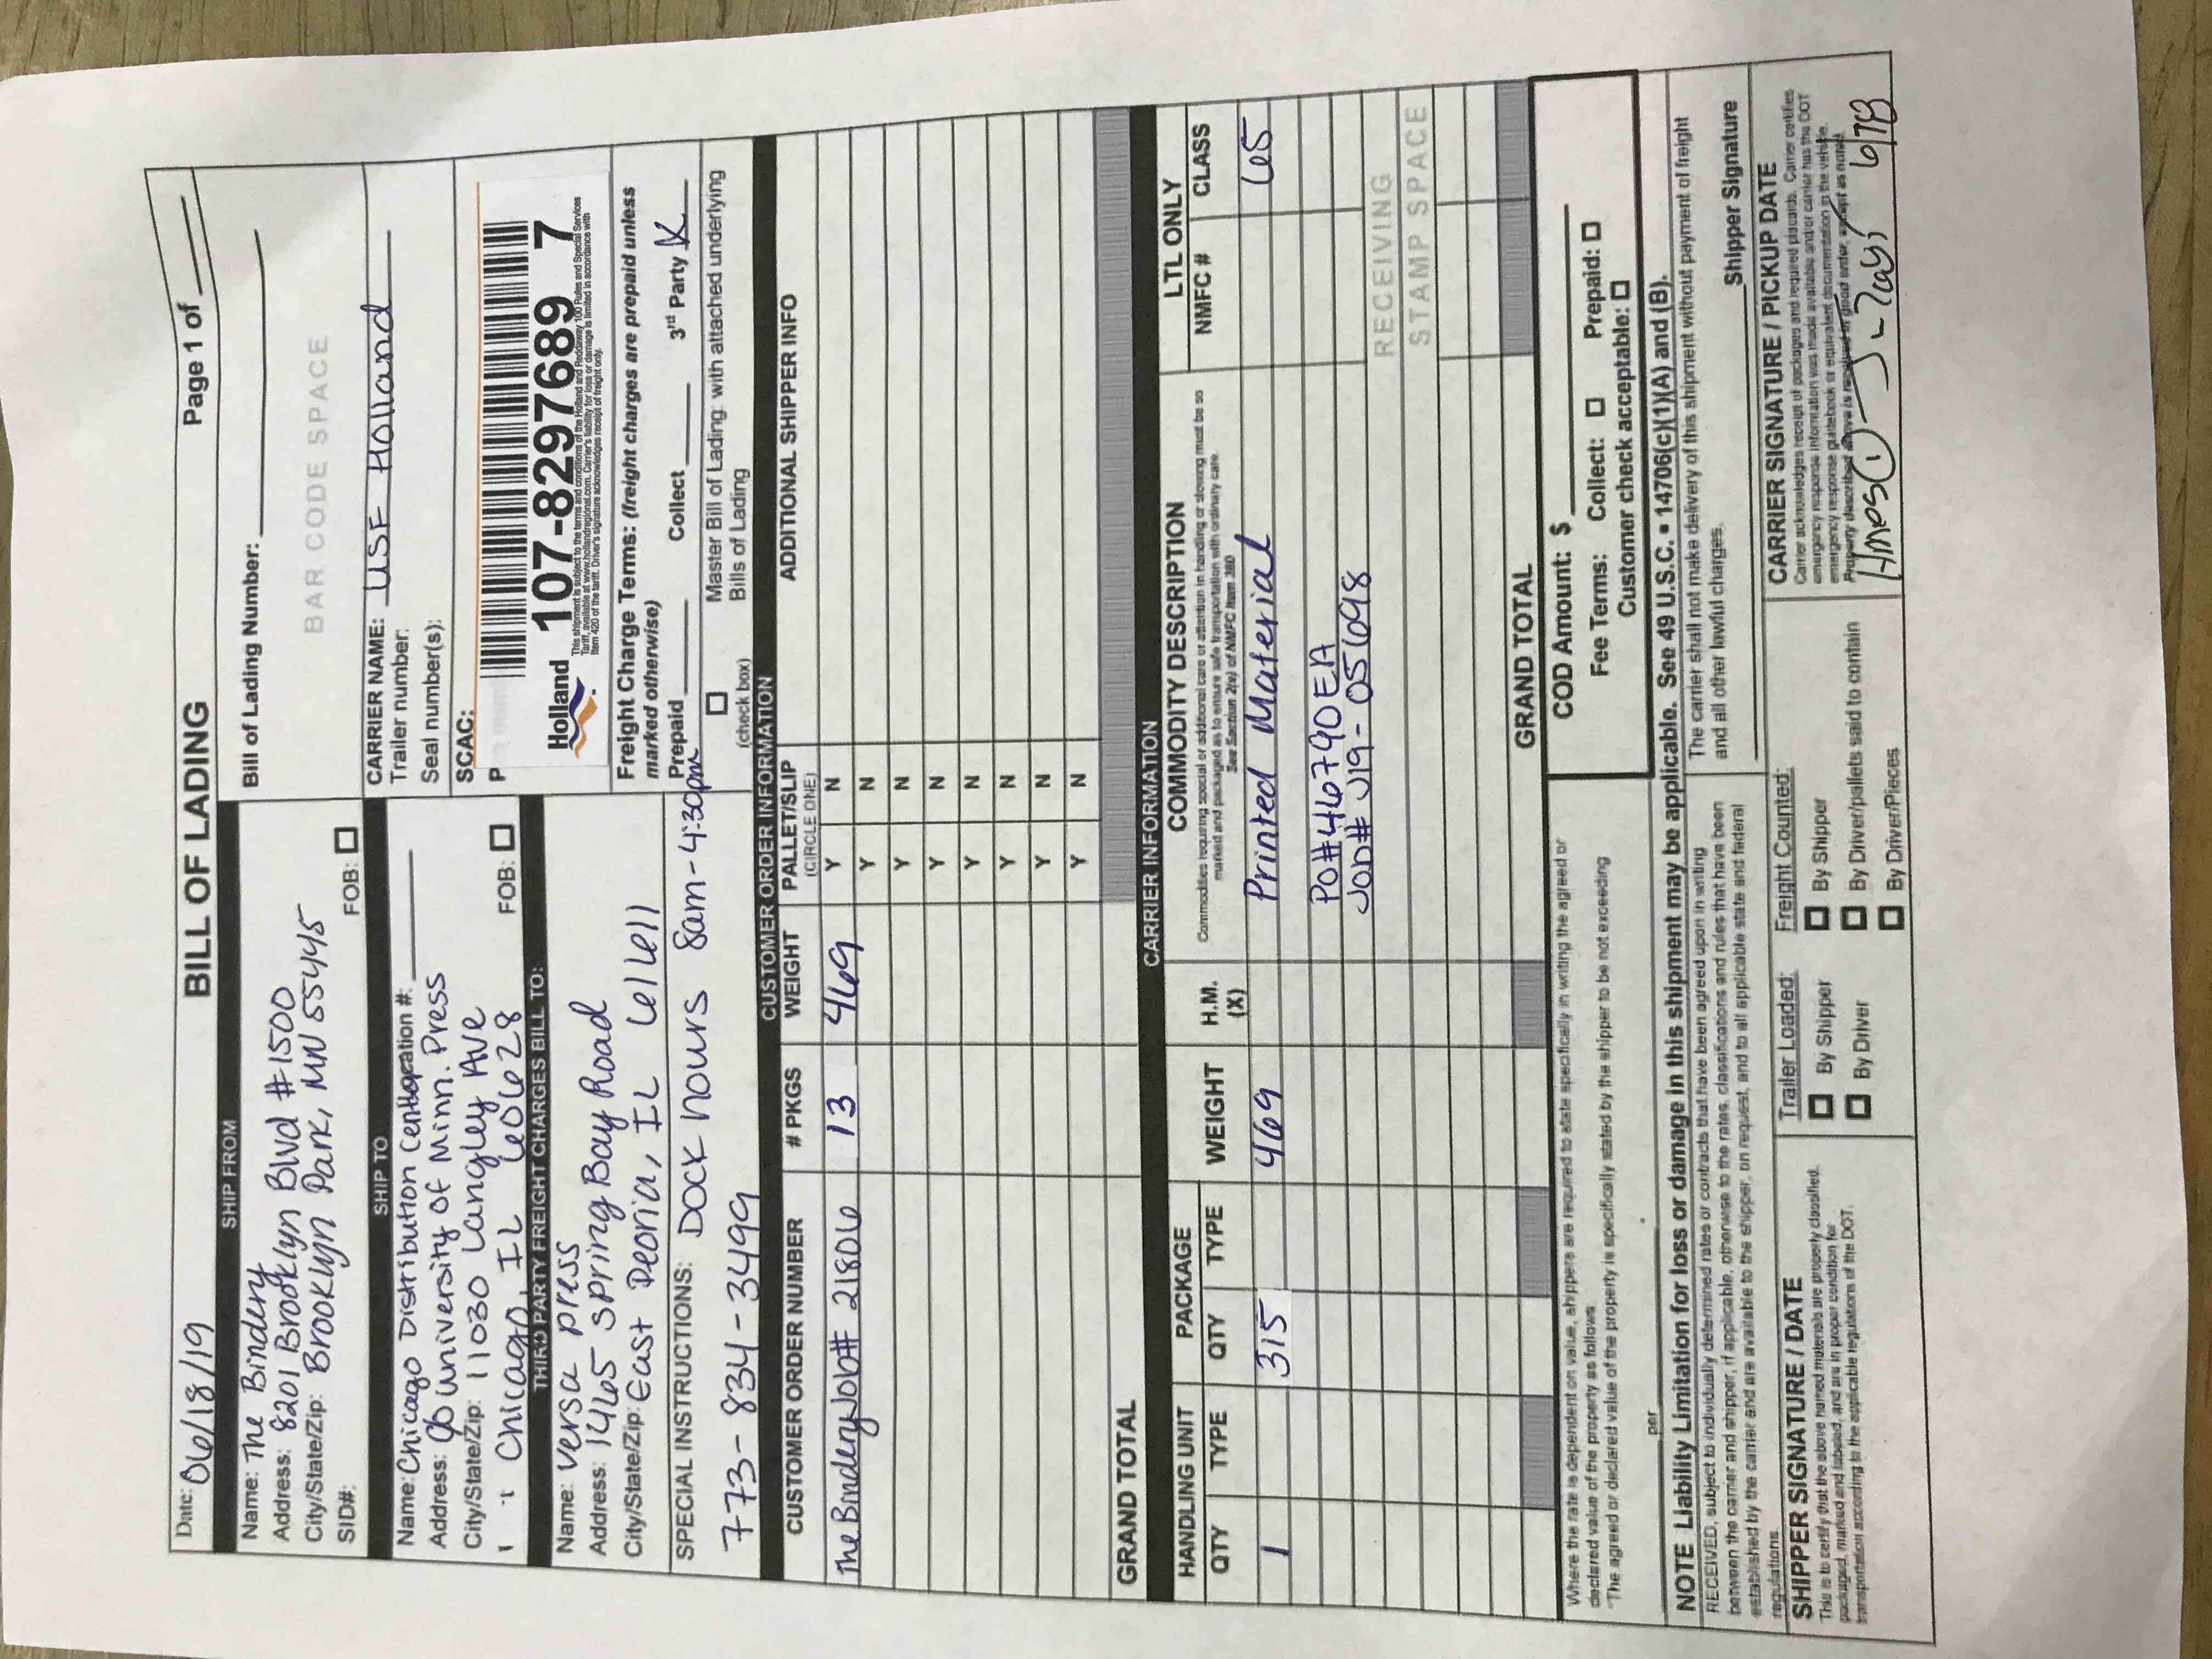 Date: 06/18/19
BILL OF LADING
Page 1 of
SHIP FROM
Name: The Bindery
Address: 8201 Brooklyn Blvd #1500
City/State/Zip: Brooklyn Park, MN 55445
SID#:
FOB: ☐
Bill of Lading Number:
BAR CODE SPACE
SHIP TO
Name: Chicago Distribution Center
Location #:
Address: c/o University of Minn. Press
City/State/Zip: 11030 Langley Ave
Chicago, IL 60628
FOB: ☐
CARRIER NAME: USF Holland
Trailer number:
Seal number(s):
SCAC:
P
Holland 107-8297689 7
This shipment is subject to the terms and conditions of the Holland and Reddaway 100 Rules and Special Services
Tariff, available at www.hollandregional.com. Carrier's liability for loss or damage is limited in accordance with
Item 420 of the tariff. Driver's signature acknowledges receipt of freight only.
THIRD PARTY FREIGHT CHARGES BILL TO:
Name: Versa Press
Address: 1465 Spring Bay Road
City/State/Zip: East Peoria, IL 61611
Freight Charge Terms: (freight charges are prepaid unless
marked otherwise)
Prepaid
Collect
3rd Party X
SPECIAL INSTRUCTIONS: Dock hours 8am-4:30pm
773-834-3499
☐
(check box)
Master Bill of Lading: with attached underlying
Bills of Lading
CUSTOMER ORDER INFORMATION
CUSTOMER ORDER NUMBER
# PKGS
WEIGHT
PALLET/SLIP
(CIRCLE ONE)
ADDITIONAL SHIPPER INFO
The Bindery Job# 21806 13 469 Y N
Y N
Y N
Y N
Y N
Y N
Y N
Y N
GRAND TOTAL
CARRIER INFORMATION
HANDLING UNIT
PACKAGE
QTY TYPE QTY TYPE WEIGHT
H.M.
(X)
COMMODITY DESCRIPTION
Commodities requiring special or additional care or attention in handling or stowing must be so
marked and packaged as to ensure safe transportation with ordinary care.
See Section 2(e) of NMFC Item 360
LTL ONLY
NMFC # CLASS
1 315 469 Printed Material 65
PO#46790EA
Job# J19-05698
RECEIVING
STAMP SPACE
GRAND TOTAL
Where the rate is dependent on value, shippers are required to state specifically in writing the agreed or
declared value of the property as follows:
"The agreed or declared value of the property is specifically stated by the shipper to be not exceeding
per
COD Amount: $
Fee Terms: Collect: ☐ Prepaid: ☐
Customer check acceptable: ☐
NOTE Liability Limitation for loss or damage in this shipment may be applicable. See 49 U.S.C. • 14706(c)(1)(A) and (B).
RECEIVED, subject to individually determined rates or contracts that have been agreed upon in writing
between the carrier and shipper, if applicable, otherwise to the rates, classifications and rules that have been
established by the carrier and are available to the shipper, on request, and to all applicable state and federal
regulations.
The carrier shall not make delivery of this shipment without payment of freight
and all other lawful charges.
Shipper Signature
SHIPPER SIGNATURE / DATE
This is to certify that the above named materials are properly classified,
packaged, marked and labeled, and are in proper condition for
transportation according to the applicable regulations of the DOT.
Trailer Loaded:
☐ By Shipper
☐ By Driver
Freight Counted:
☐ By Shipper
☐ By Driver/pallets said to contain
☐ By Driver/Pieces
CARRIER SIGNATURE / PICKUP DATE
Carrier acknowledges receipt of packages and required placards. Carrier certifies
emergency response information was made available and/or carrier has the DOT
emergency response guidebook or equivalent documentation in the vehicle.
Property described above is received in good order, except as noted.